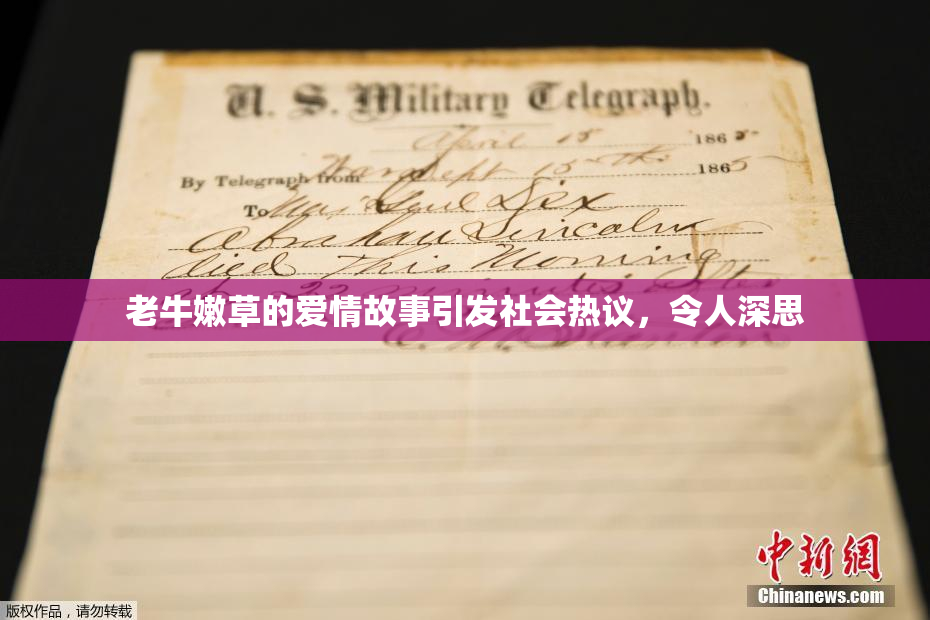 U. S. Military Telegraph.
April 15 1865
By Telegraph from War Dept 15th 1865
To Maj Genl Dix
Abraham Lincoln
died This Morning
22 minutes after
老牛嫩草的爱情故事引发社会热议，令人深思
E. M. Stanton
中新网
Chinanews.com
版权作品，请勿转载